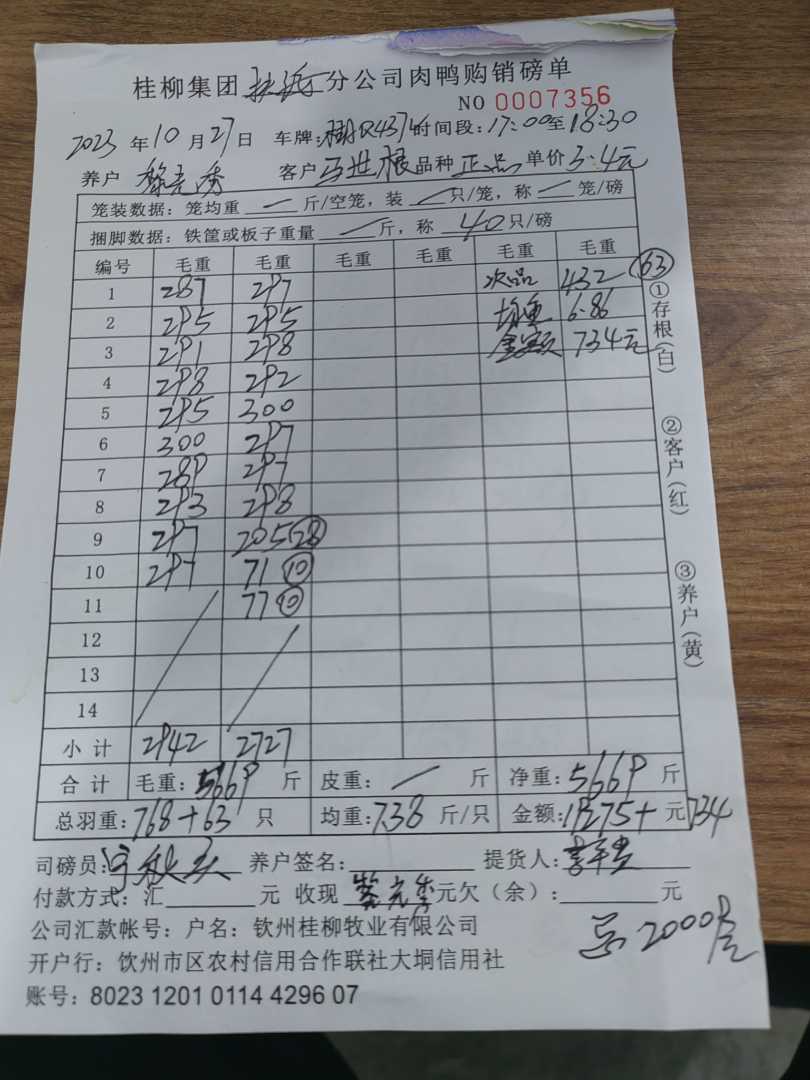 桂柳集团 扶绥 分公司肉鸭购销磅单
NO 0007356
2023 年 10 月 27 日 车牌: R4374 时间段: 17:00 至 18:30
养户 黎克秀 客户 马世根 品种 正品 单价 3.4元
笼装数据: 笼均重 — 斤/空笼, 装 — 只/笼, 称 — 笼/磅
捆脚数据: 铁筐或板子重量 — 斤, 称 40 只/磅
编号 毛重 毛重 毛重 毛重 毛重 毛重
1 287 297 次品 432 (63)
2 295 295 均重 6.86
3 291 298 金额 734元
4 298 292
5 295 300
6 300 297
7 289 297
8 293 298
9 297 205 (28)
10 297 71 (10)
11 77 (10)
12
13
14
小计 2942 2727
合计 毛重: 5669 斤 皮重: — 斤 净重: 5669 斤
总羽重: 768+63 只 均重: 738 斤/只 金额: 19275+ 元 734
司磅员: 养户签名: 提货人:
付款方式: 汇 元 收现 元 欠(余): 元
公司汇款帐号: 户名: 钦州桂柳牧业有限公司
总2000只
开户行: 钦州市区农村信用合作联社大垌信用社
账号: 8023 1201 0114 4296 07
①存根(白)
②客户(红)
③养户(黄)